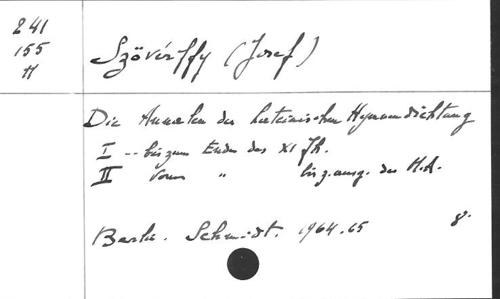 241
155
H
Szövérffy (Josef)
Die Annalen der lateinischen Hymnendichtung
I -- bis zum Ende des XI Jh.
II Vom " bis z. ausg. des M.A.
Berlin. Schmidt. 1964-65 8°.